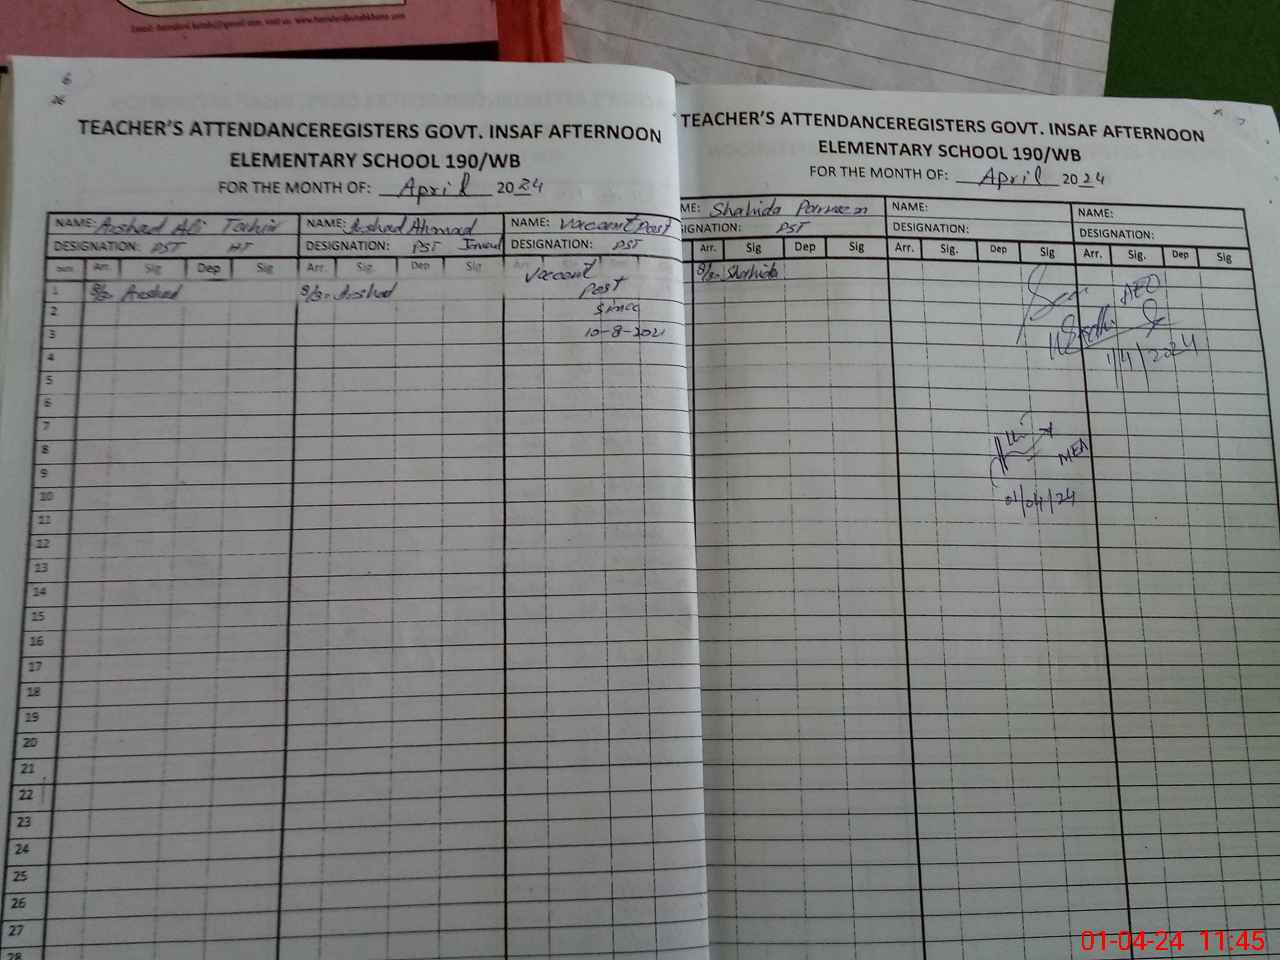 6
26
TEACHER'S ATTENDANCEREGISTERS GOVT. INSAF AFTERNOON
ELEMENTARY SCHOOL 190/WB
FOR THE MONTH OF: April 2024
NAME: Arshad Ali Tachir NAME: Arshad Ahmad NAME: Vaccant Post
DESIGNATION: PST HT DESIGNATION: PST DESIGNATION: PST
Arr. Sig Dep Sig Arr. Sig. Dep Sig
Vaccant
1 Arshad Arshad Post
2 Since
3 10-8-2021
4
5
6
7
8
9
10
11
12
13
14
15
16
17
18
19
20
21
22
23
24
25
26
27
28
TEACHER'S ATTENDANCEREGISTERS GOVT. INSAF AFTERNOON
ELEMENTARY SCHOOL 190/WB
FOR THE MONTH OF: April 2024
ME: Shahida Parveen NAME: NAME:
SIGNATION: PST DESIGNATION: DESIGNATION:
Arr. Sig Dep Sig Arr. Sig. Dep Sig Arr. Sig. Dep Sig
Shahida
AEO
1/4/2024
MEA
01/04/24
01-04-24 11:45